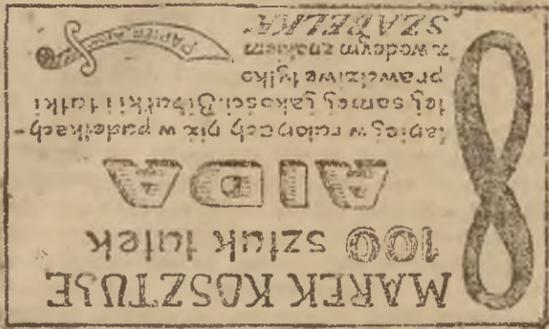 8 MAREK KOSZTUJE
100 sztuk tutek
AIDA
taniej w rulonach niż w pudełkach -
tej samej jakości. Bibułki i tutki
prawdziwe tylko
z wodnym znakiem
SZABELKA"
PAPIER